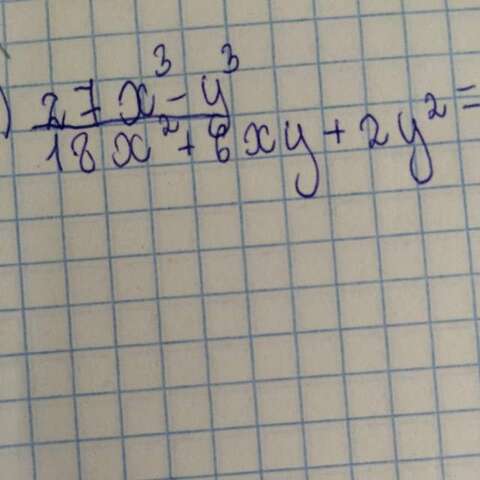 ) 27x³ - y³
18x² + 6xy + 2y² =